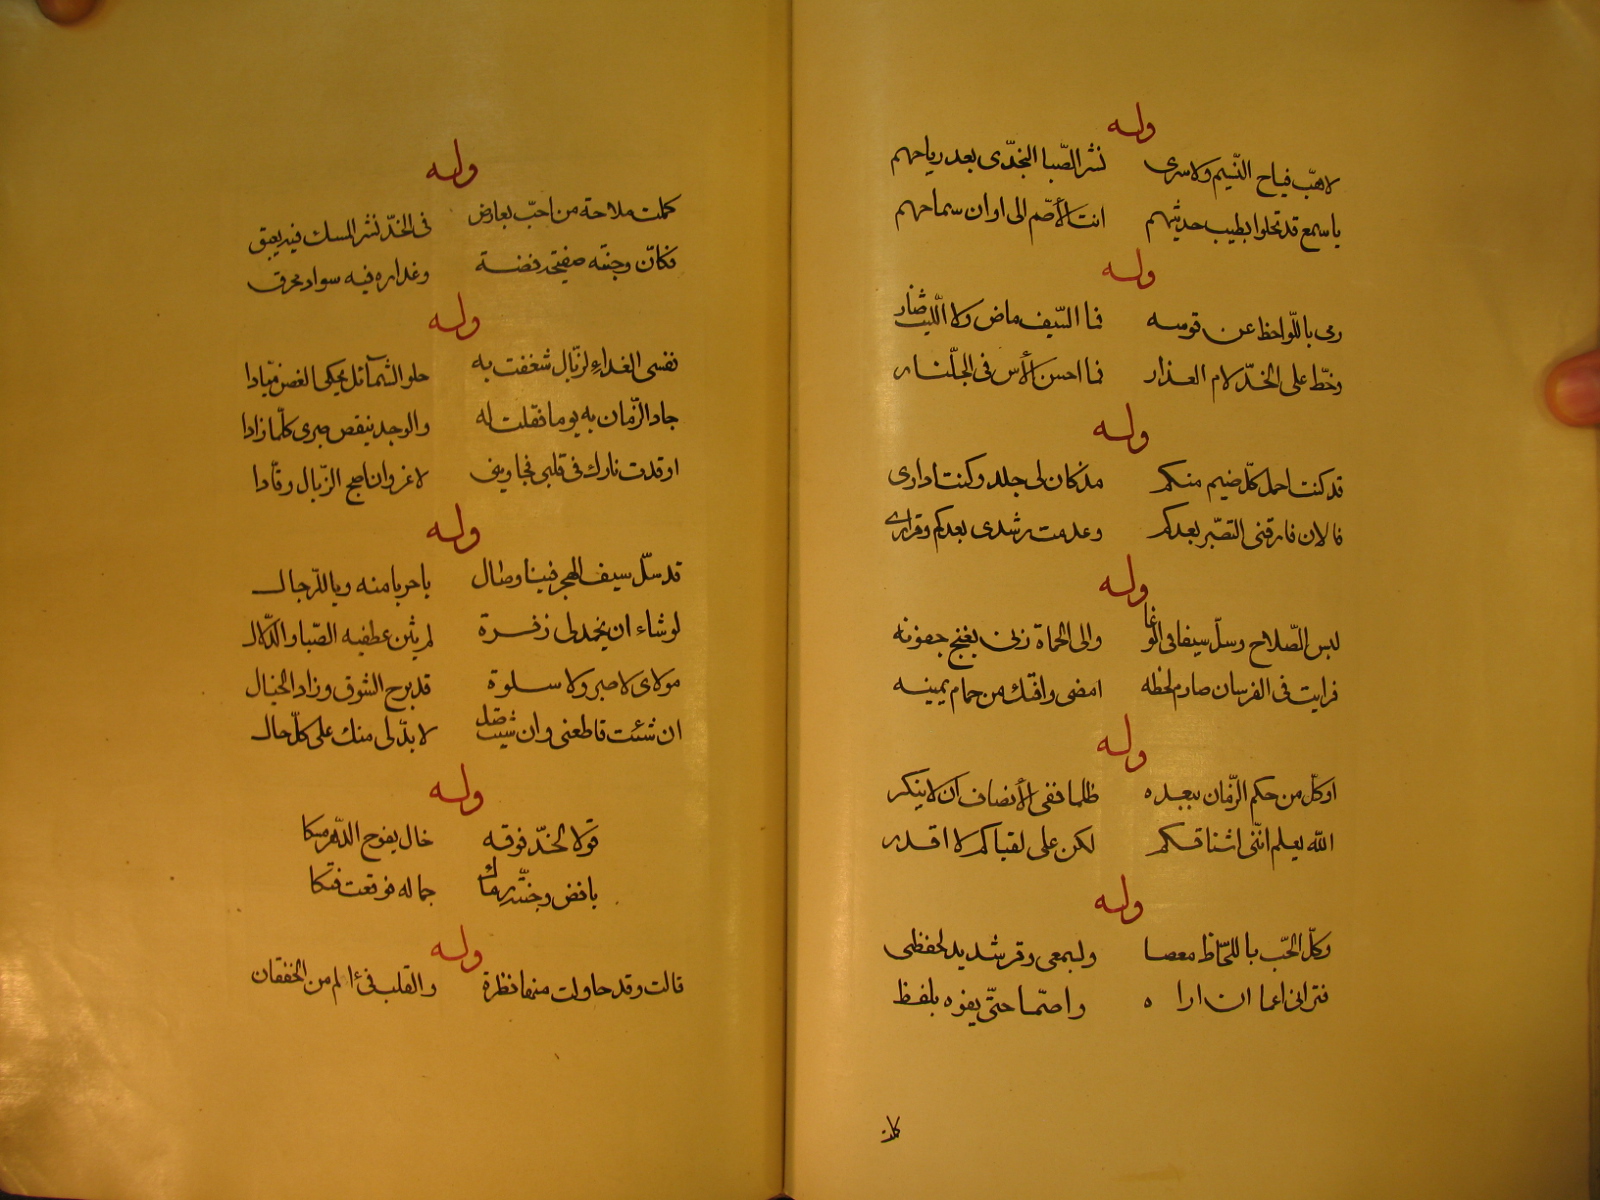 وله
لاهبّ فياح النّسيم ولا سرى نشر الصّبا النجدّى بعد رياحهم
يا سمع قد تحلوا بطيب حديثهم انت الأصّم الى اوان سماحهم
وله
رمى باللّواحظ عن قوسه فما السّيف ماض ولا اللّيث ضار
وخّط على الخدّ لام العذار فما احسن الأس فى الجلّنار
وله
قد كنت احمل كلّ ضيم منكم مذ كان لى جلد وكنت ادارى
فالان فارقنى التصبّر بعدكم وعدمت رشدى بعدكم وقرارى
وله
لبس الصّلاح وسلّ سيفا فى الوغا والى الحماة رنى بغنج جفونه
فرايت فى الفرسان صارم لحظه امضى وافتك من حمام يمينه
وله
اوكلّ من حكم الزّمان ببعده ظلما ففى الأنصاف ان لا ينكر
الله يعلم انّنى اشتاقكم لكن على لقياكم لا اقدر
وله
وكلّ الحّب باللحّاظ معصا ولسمعى وقر شديد لحفظى
فترانى اعما ان اراه واصّما حتّى يفوه بلفظ
كملت
وله
كملت ملاحة من احبّ بعارض فى الخدّ نشر المسك فيه يعبق
فكانّ وجنته صفيحة فضة وعذاره فيه سواد محرق
وله
نفسى الفداء لزبّال شغفت به حلو الشمآئل يحكى الغصن ميّادا
جاد الزّمان به يوما فقلت له والوجد ينقص صبرى كلّما زادا
اوقدت نارك فى قلبى فجاوبنى لا غروان اصبح الزّبال وقّادا
وله
قد سلّ سيف الهجر فينا وصال ياحربا منه وياللرّجال
لو شاء ان يخمد لى زفرة لم يثن عطفيه الصّبا والدّلال
مولاى لا صبر ولا سلوة قد برح الشوق وزاد الخيال
ان شئت قاطعنى وان شئت صل لا بدّ لى منك على كلّ حال
وله
قولا لخدّ فوقه خال يفوح الدّهر مسكا
جماله فوقعت فتكا
وله
قالت وقد حاولت منها نظرة والقلب فى الم من الخفقان